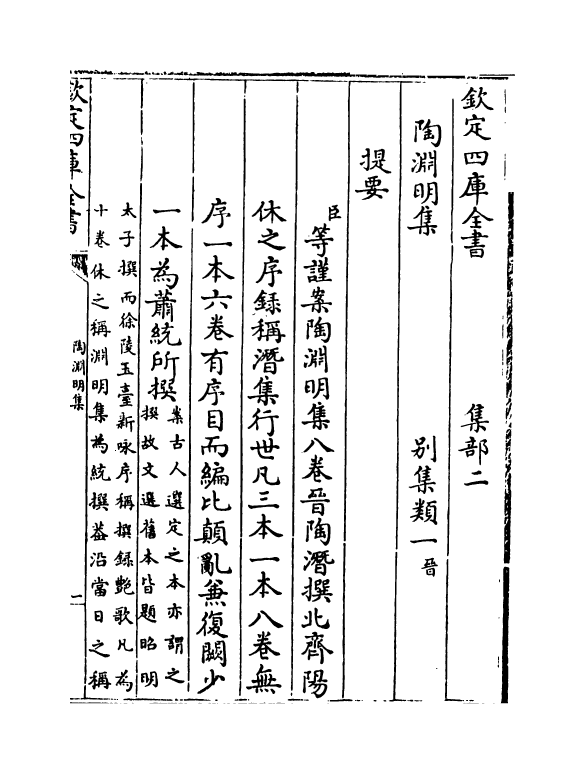 欽定四庫全書 集部二
陶淵明集 別集類一晉
提要
臣等謹案陶淵明集八卷晉陶潛撰北齊陽
休之序録稱潛集行世凡三本一本八卷無
序一本六卷有序目而編比顛亂兼復闕少
一本為蕭統所撰案古人選定之本亦謂之
撰故文選舊本皆題昭明
太子撰而徐陵玉臺新咏序稱撰録艶歌凡為
十卷休之稱淵明集為統撰葢沿當日之稱
欽定四庫全書
陶淵明集